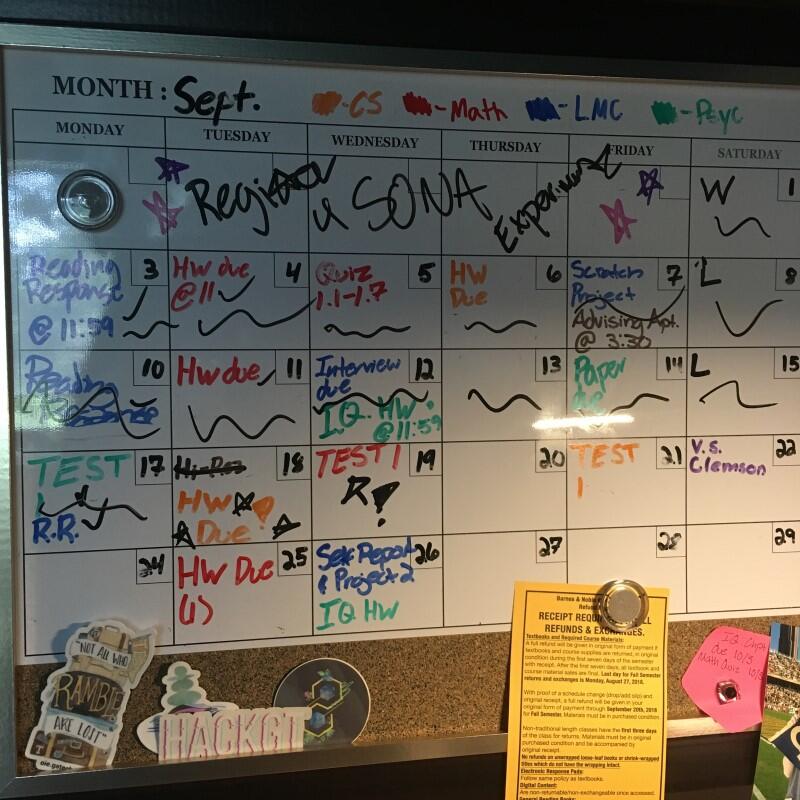 MONTH : Sept. -CS -Math -LMC -Psyc
MONDAY TUESDAY WEDNESDAY THURSDAY FRIDAY SATURDAY
Register 4 SONA Experiment
W 1
Reading Response @ 11:59 3
HW due @ 11 4
Quiz 1.1-1.7 5
HW Due 6
Scratch Project 7
Advising Apt. @ 3:30
L 8
Reading 10
HW due 11
Interview due 12
IQ HW @ 11:59
13
Paper due 14
L 15
TEST 1 17
R.R.
18
HW Due
TEST 1 19
R
20
TEST 1 21
V.S. Clemson 22
24
HW Due 25
(1)
Self Report & Project 2 26
IQ HW
27
28
29
"NOT ALL WHO
RAMBLE
ARE LOST"
HACKGT
Barnes & Noble
RECEIPT REQUI
REFUNDS & EXCHANGES.
Textbooks and Required Course Materials:
A full refund will be given in original form of payment if
textbooks and course supplies are returned, in original
condition during the first seven days of the semester
with receipt. After the first seven days, all textbook and
course material sales are final. Last day for Fall Semester
returns and exchanges is Monday, August 27, 2018.
With proof of a schedule change (drop/add slip) and
original receipt, a full refund will be given in your
original form of payment through September 20th, 2018
for Fall Semester. Materials must be in purchased condition.
Non-traditional length classes have the first three days
of the class for returns. Materials must be in original
purchased condition and be accompanied by
original receipt.
No refunds on unwrapped loose-leaf books or shrink-wrapped
titles which do not have the wrapping intact.
Electronic Response Pads:
Follow same policy as textbooks.
Digital Content:
Are non-returnable/non-exchangeable once accessed.
General Reading Books:
IQ Chpt
Due 10/3
Math Quiz 10/3